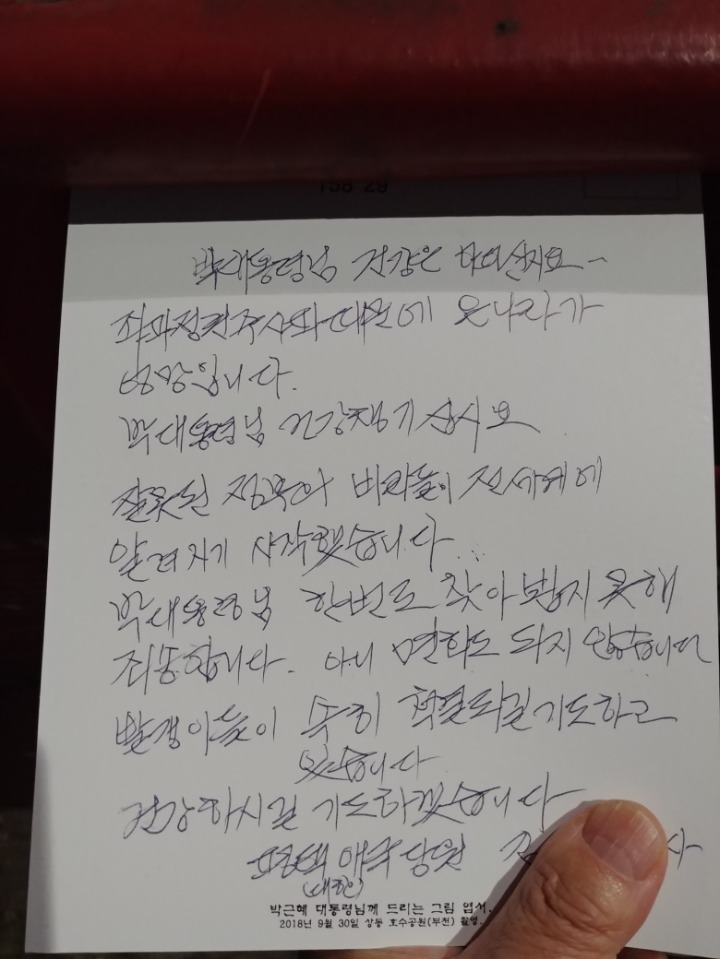 158 29
박대통령님 건강은 하십니까요~
좌파정권 주사파 때문에 온나라가
엉망입니다.
박대통령님 건강챙기십시요
잘못된 정책의 비리들이 전세계에
알려지기 시작했습니다.
박대통령님 한번도 찾아뵙지 못해
죄송합니다. 아니 면회도 되지 않습니다
빨갱이들이 속히 척결되길 기도하고
있습니다
건강하시길 기도하겠습니다
평택 애국 당원
(대한)
박근혜 대통령님께 드리는 그림 엽서.
2018년 9월 30일 상동 호수공원(부천) 촬영.